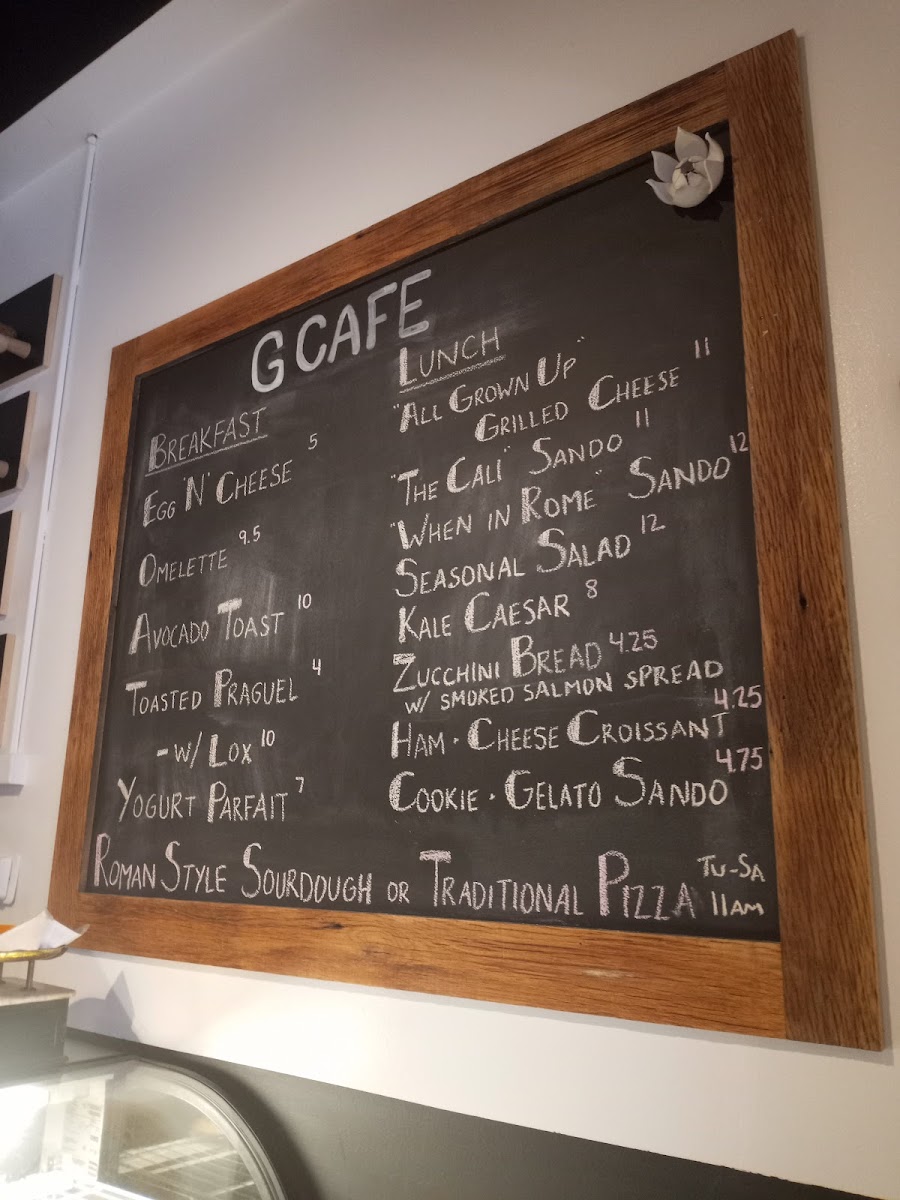 G CAFE
BREAKFAST
EGG 'N' CHEESE 5
OMELETTE 9.5
AVOCADO TOAST 10
TOASTED PRAGUEL 4
- W/ LOX 10
YOGURT PARFAIT 7
LUNCH
"ALL GROWN UP" 11
GRILLED CHEESE
"THE CALI" SANDO 11
"WHEN IN ROME" SANDO 12
SEASONAL SALAD 12
KALE CAESAR 8
ZUCCHINI BREAD 4.25
W/ SMOKED SALMON SPREAD
HAM · CHEESE CROISSANT 4.25
COOKIE · GELATO SANDO 4.75
ROMAN STYLE SOURDOUGH OR TRADITIONAL PIZZA TU-SA
11AM